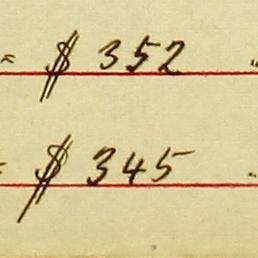 = $ 352 "
= $ 345 "